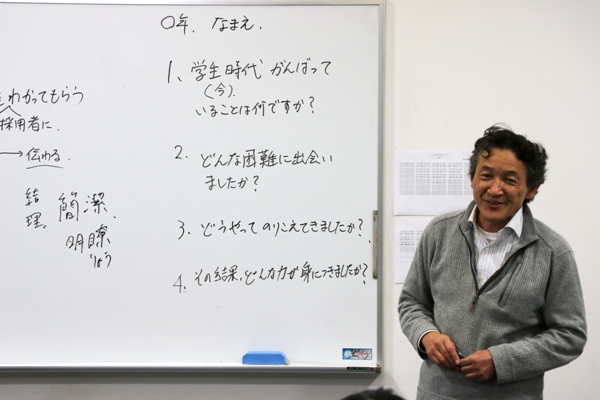 わかってもらう
採用者に.
→伝わる.
結
理.
簡潔.
明瞭
りょう
〇年、なまえ.
1、学生時代 がんばって
(今)
いることは何ですか?
2. どんな困難に出会い
ましたか?
3. どうやってのりこえてきましたか?
4. その結果、どんな力が身につきましたか?